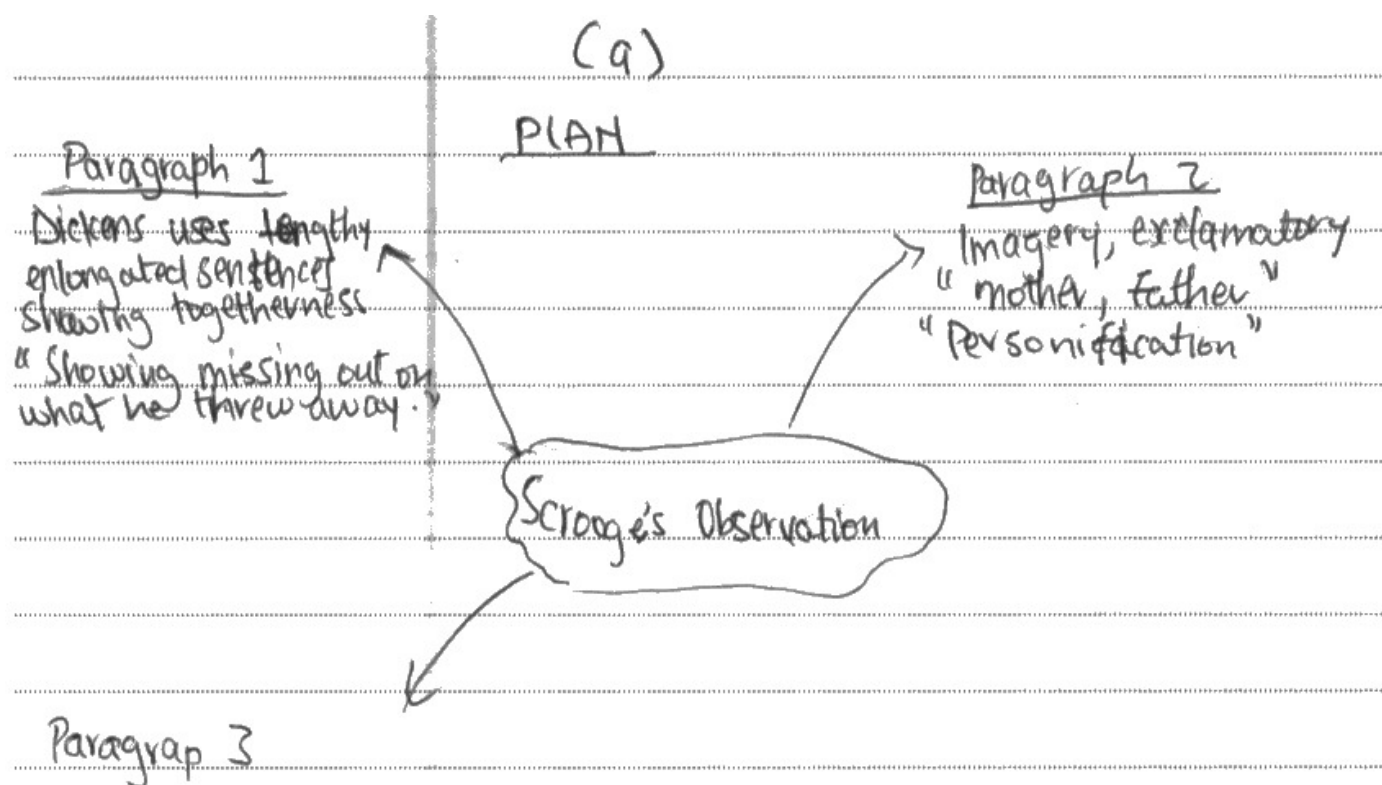 (a)
PLAN
Paragraph 1
Dickens uses lengthy
enlongated sentences
showing togetherness
"Showing missing out on
what he threw away."
Paragraph 2
Imagery, exclamatory
"mother, father"
"Personification"
Scrooge's Observation
Paragrap 3